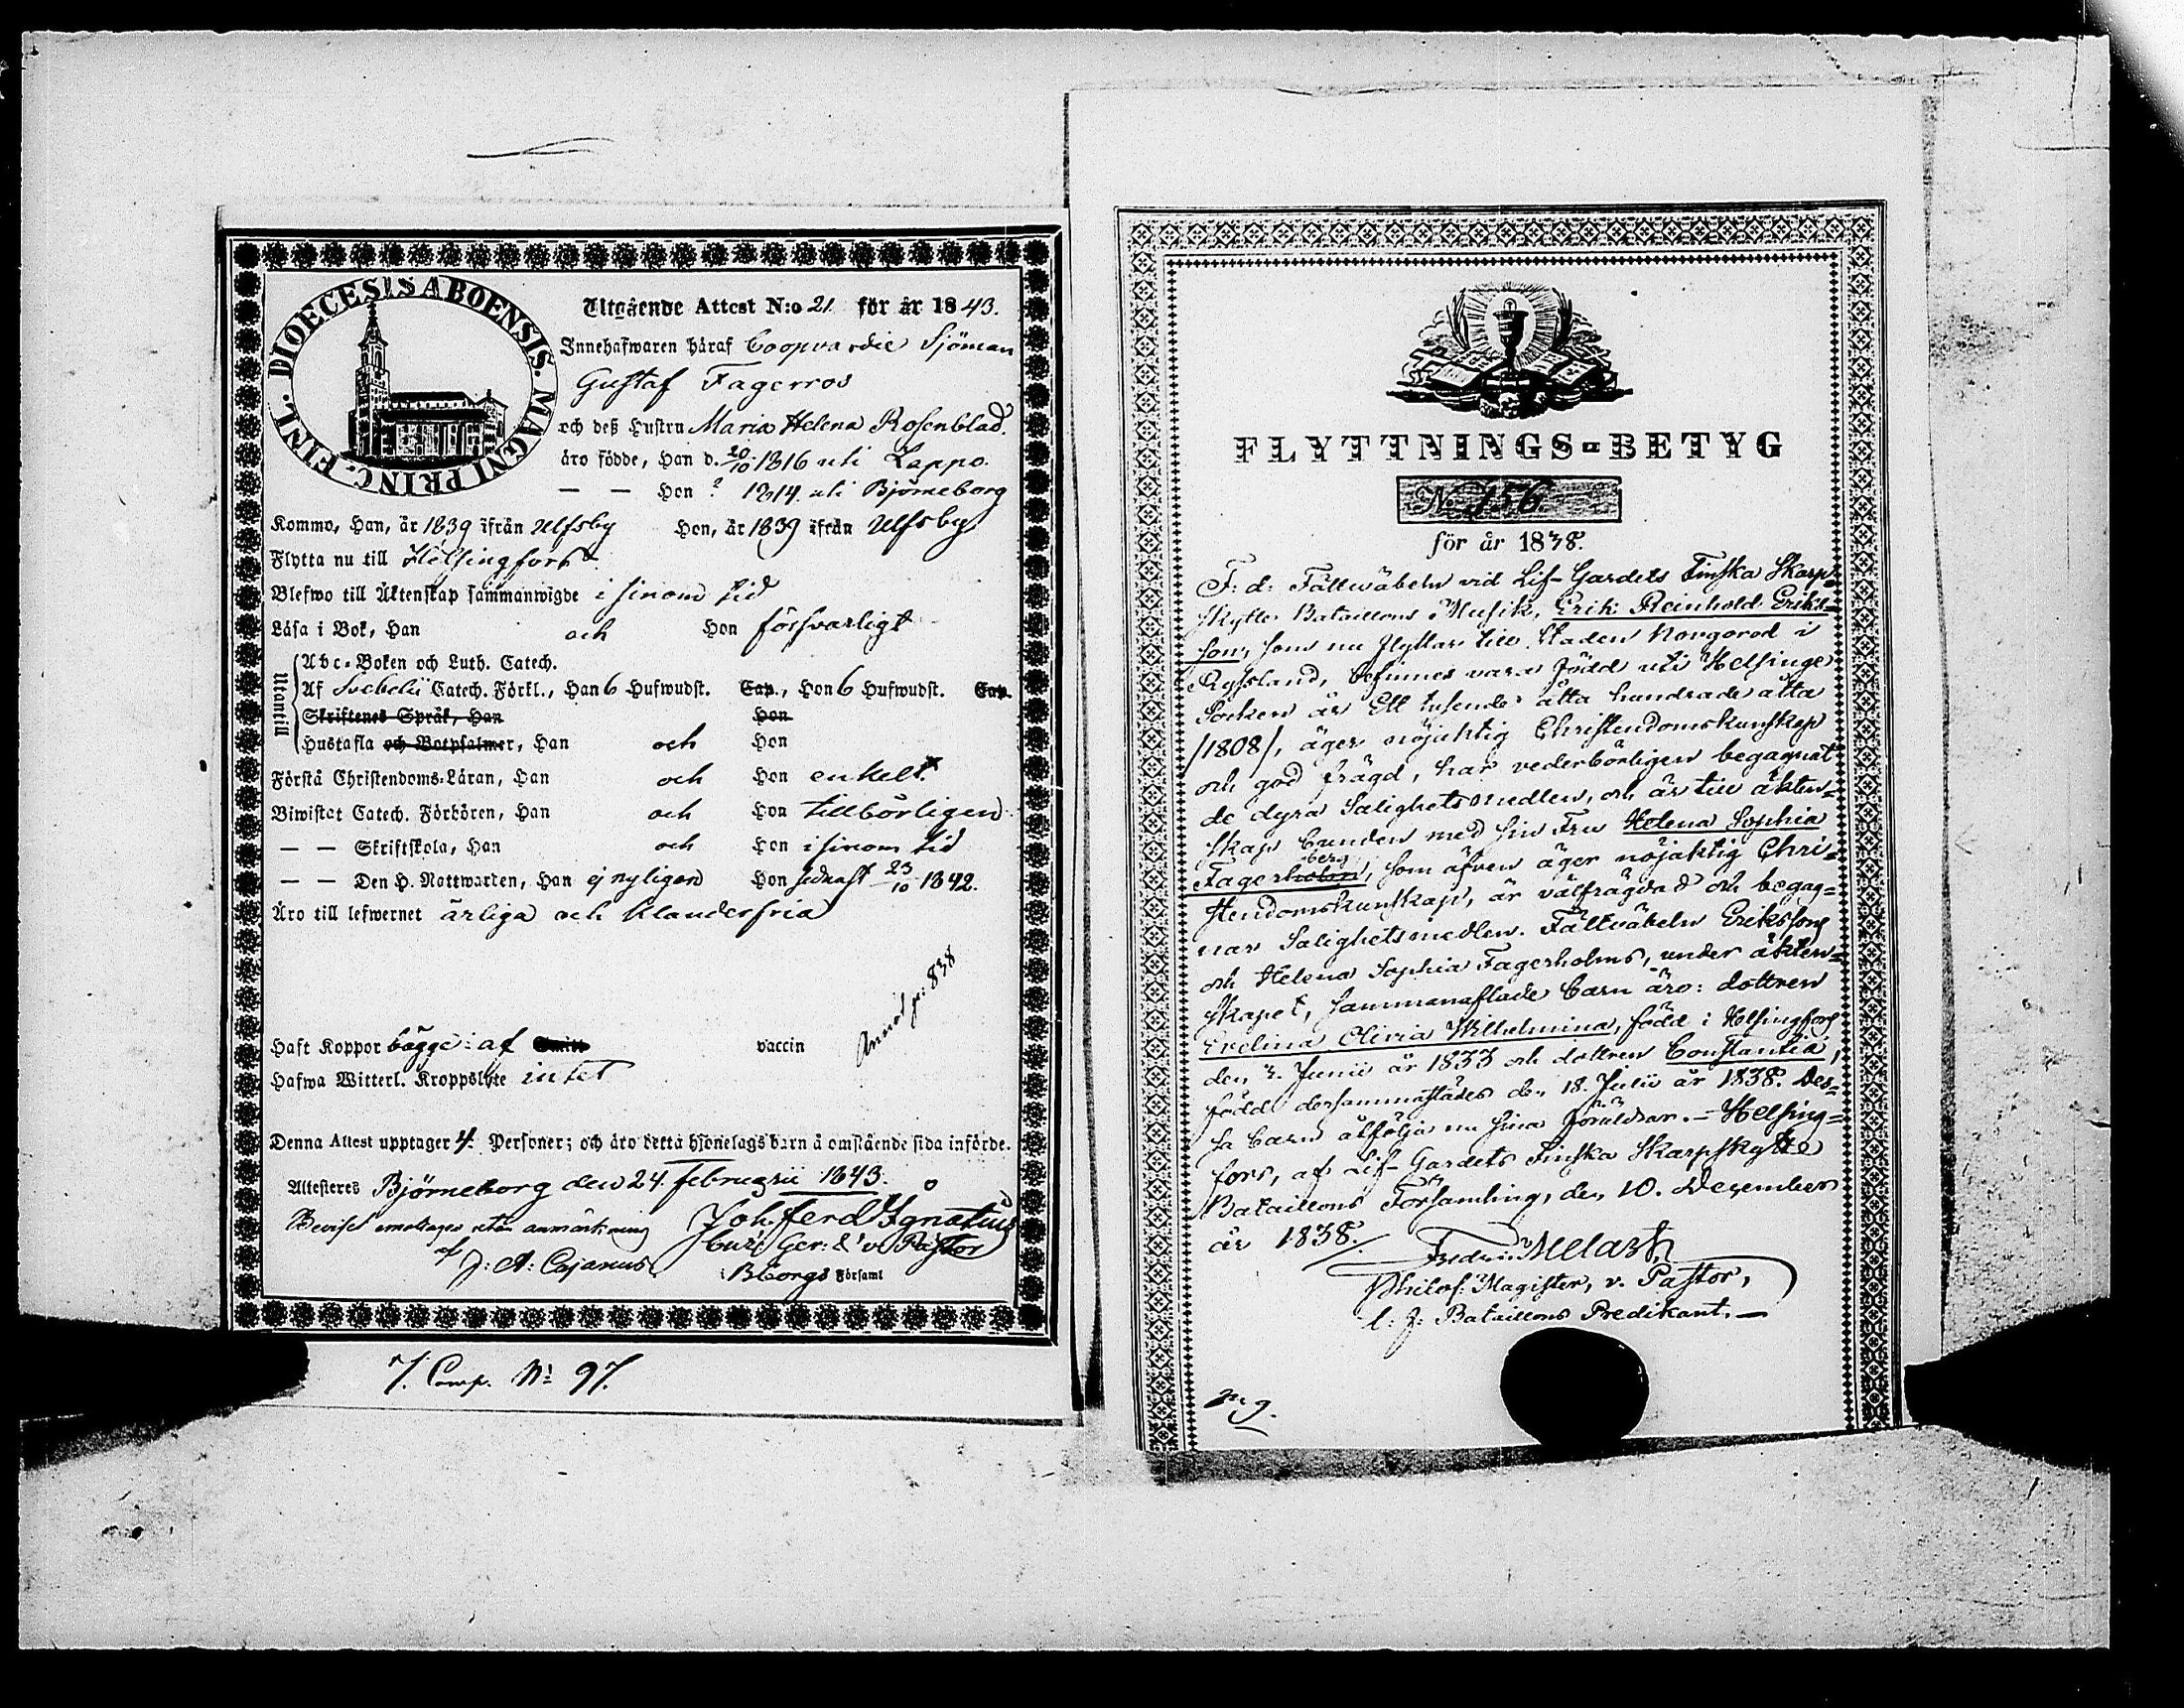 DIOECESIS ABOENSIS. MAGNI PRINC. FINL.
Utgående Attest N:o 21 för år 1843.
Innehafwaren håraf Coopvardie Sjöman
Gustaf Fagerros
och deß Hustru Maria Helena Rosenblad.
äro födde, Han d. 20/10 1816 uti Lappo.
— — Hon ? 1814. uti Björneborg
Kommo, Han, år 1839 ifrån Ulfsby Hon, år 1839 ifrån Ulfsby
Flytta nu till Helsingfors
Blefwo till Äktenskap sammanwigde i sinom tid
Läsa i Bok, Han och Hon försvarligt
Utantill
Abc-Boken och Luth. Catech.
Af Svebelii Catech. Förkl., Han 6 Hufwudst. Cap., Hon 6 Hufwudst. Cap.
Skriftenes Språk, Han Hon
Hustafla och Botpsalmer, Han och Hon
Förstå Christendoms-Läran, Han och Hon enkelt.
Biwistat Catech. Förhören, Han och Hon tillbörligen
— — Skriftskola, Han och Hon i sinom tid
— — Den H. Nattwarden, Han ej nyligen Hon sednast 23/10 1842.
Äro till lefwernet ärliga och klanderfria
Haft Koppor bägge: af vaccin
Hafwa Witterl. Kroppslyte intet
Denna Attest upptager 4. Personer; och äro detta hjonelags barn å omstående sida införde.
Attesteras Björneborg den 24 februarii 1843.
Beviset emottages utan anmärkning Joh. Ferd Ignatius
af J: A: Cajanus. v. Pastor
i Bborgs Församl
7. Comp. No 97.
FLYTTNINGS-BETYG
No 156
för år 1838.
F: d: Fältwäbeln vid Lif-Gardets Finska Skarp-
skytte Bataillons Musik, Erik Reinhold Eriks-
son, som nu flyttar till Staden Novgorod i
Ryssland, befinnes vara född uti Helsinge
Socken år Ett tusende åtta hundrade åtta
/1808/, äger nöjaktig Christendomskunskap
och god frägd, har vederbörligen begagnat
de dyra Salighetsmedlen, och är till äkten-
skap bunden med sin Fru Helena Sophia
berg
Fagerholm, som äfven äger nöjaktig Chri-
stendomskunskap, är välfrägdad och begag-
nar Salighetsmedlen. Fältväbeln Erikssons
och Helena Sophia Fagerholms, under äkten-
skapet, sammanaflade barn äro: dottren
Evelina Olivia Wilhelmina, född i Helsingfors
den 3. Junii år 1833 och dottren Constantia,
född dersammastädes den 18. Julii år 1838. Des-
sa barn åtfölja nu sina föräldrar. — Helsing-
fors, af Lif-Gardets Finska Skarpskytte
Bataillons Församling, den 10. December
år 1838.
Fredric Melart
Philos. Magister, v. Pastor,
t. f. Bataillons Predikant. —